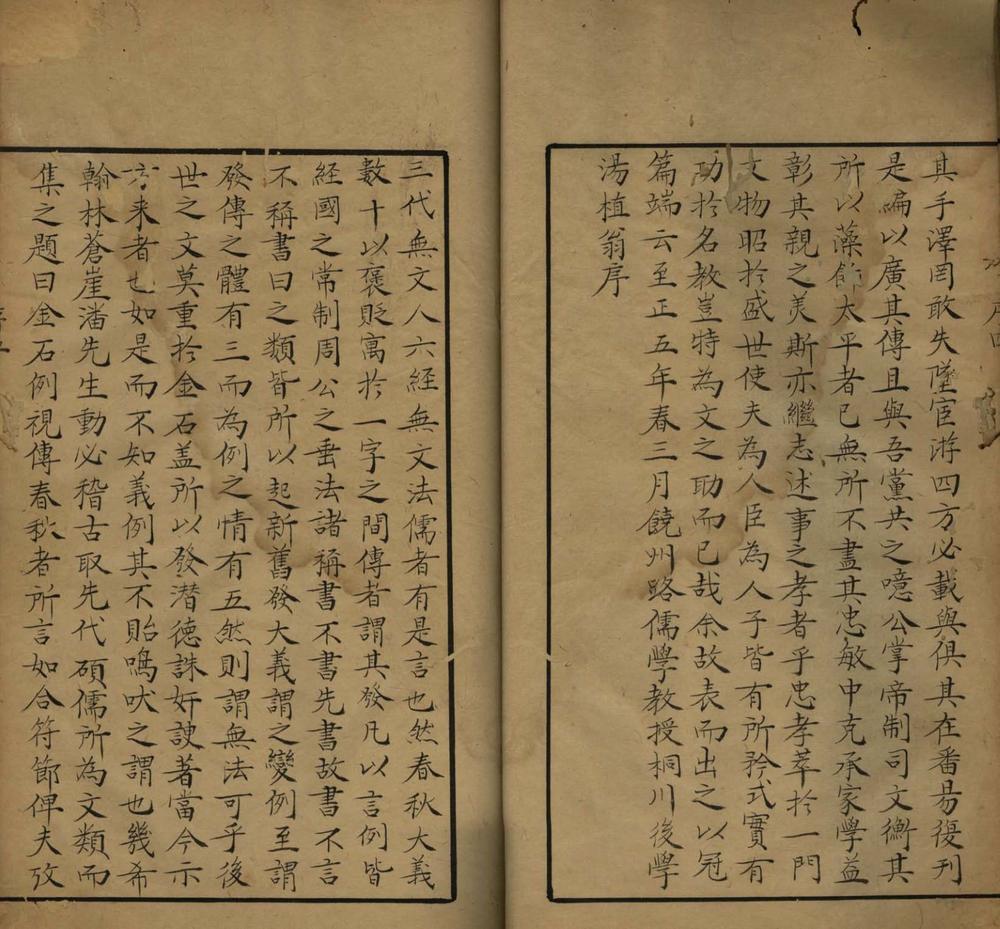 其手澤罔敢失墜宦游四方必載與俱其在番昜復刊
是編以廣其傳且與吾黨共之噫公掌帝制司文衡其
所以藻飾太平者已無所不盡其忠敏中克承家學益
彰其親之美斯亦繼志述事之孝者乎忠孝萃扵一門
文物昭扵盛世使夫為人臣為人子皆有所矜式實有
功扵名教豈特為文之助而已哉余故表而出之以冠
篇端云至正五年春三月饒州路儒學教授桐川後學
湯植翁序
三代無文人六經無文法儒者有是言也然春秋大義
數十以褒貶寓扵一字之間傳者謂其發凡以言例皆
經國之常制周公之垂法諸稱書不書先書故書不言
不稱書曰之類皆所以起新舊發大義謂之變例至謂
發傳之體有三而為例之情有五然則謂無法可乎後
世之文莫重扵金石盖所以發潛德誅奸諛著當今示
方来者也如是而不知義例其不貽鳴吠之謂也幾希
翰林蒼崖潘先生動必稽古取先代碩儒所為文類而
集之題曰金石例視傳春秋者所言如合符節俾夫攷